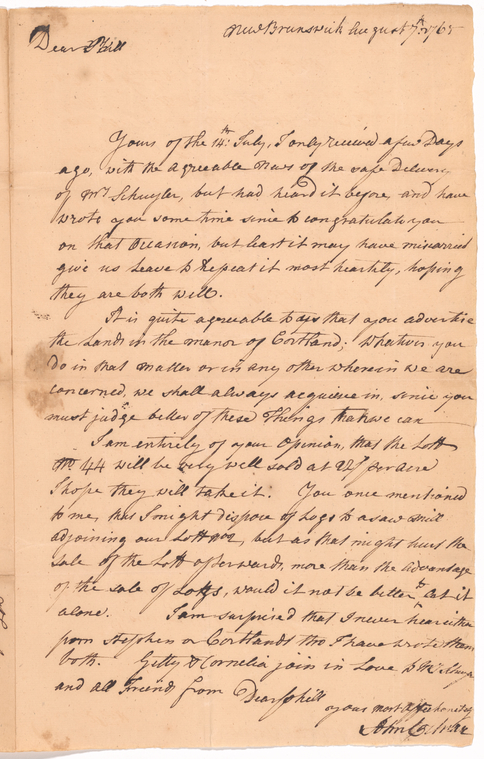 New Brunswick August 7th 1765
Dear Phill
Yours of the 14th July, I only received a few Days
ago, with the agreeable News of the safe Delivery
of Mrs Schuyler, but had heard it before, and have
wrote you some time since to congratulate you
on that Occasion, but least it may have miscarried
give us Leave to Repeat it most heartily, hoping
they are both well.
It is quite agreeable to us that you advertise
the Lands in the manor of Cortland; Whatever you
do in that matter or in any other wherein we are
concerned, we shall always acquiesce in, since you
must judge better of these Things than we can
I am entirely of your Opinion, that the Lott
No 44 will be very well sold at per acre
I hope they will take it. You once mentioned
to me, that I might dispose of Logs to a saw mill
adjoining our Lott but as that might hurt the
sale of the Lott afterwards, more than the advantage
of the sale of Loggs, would it not be better to Let it
alone. I am surprised that I never hear either
from Stephen or Cortlandt tho I have wrote them
both. Getty & Cornelia join in Love to Mrs Schuyler
and all Friends from Dear Phill
your most affectionately
John